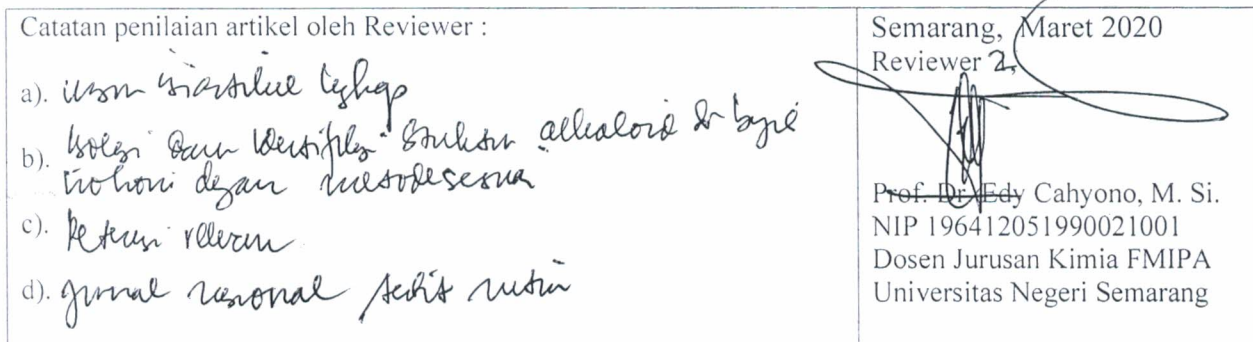 Catatan penilaian artikel oleh Reviewer :
a). unsur lengkap
b). isolasi dan identifikasi struktur alkaloid dr
dengan metode sesuai
c). relevan
d). jurnal nasional terbit rutin
Semarang, Maret 2020
Reviewer 2,
Prof. Dr. Edy Cahyono, M. Si.
NIP 196412051990021001
Dosen Jurusan Kimia FMIPA
Universitas Negeri Semarang